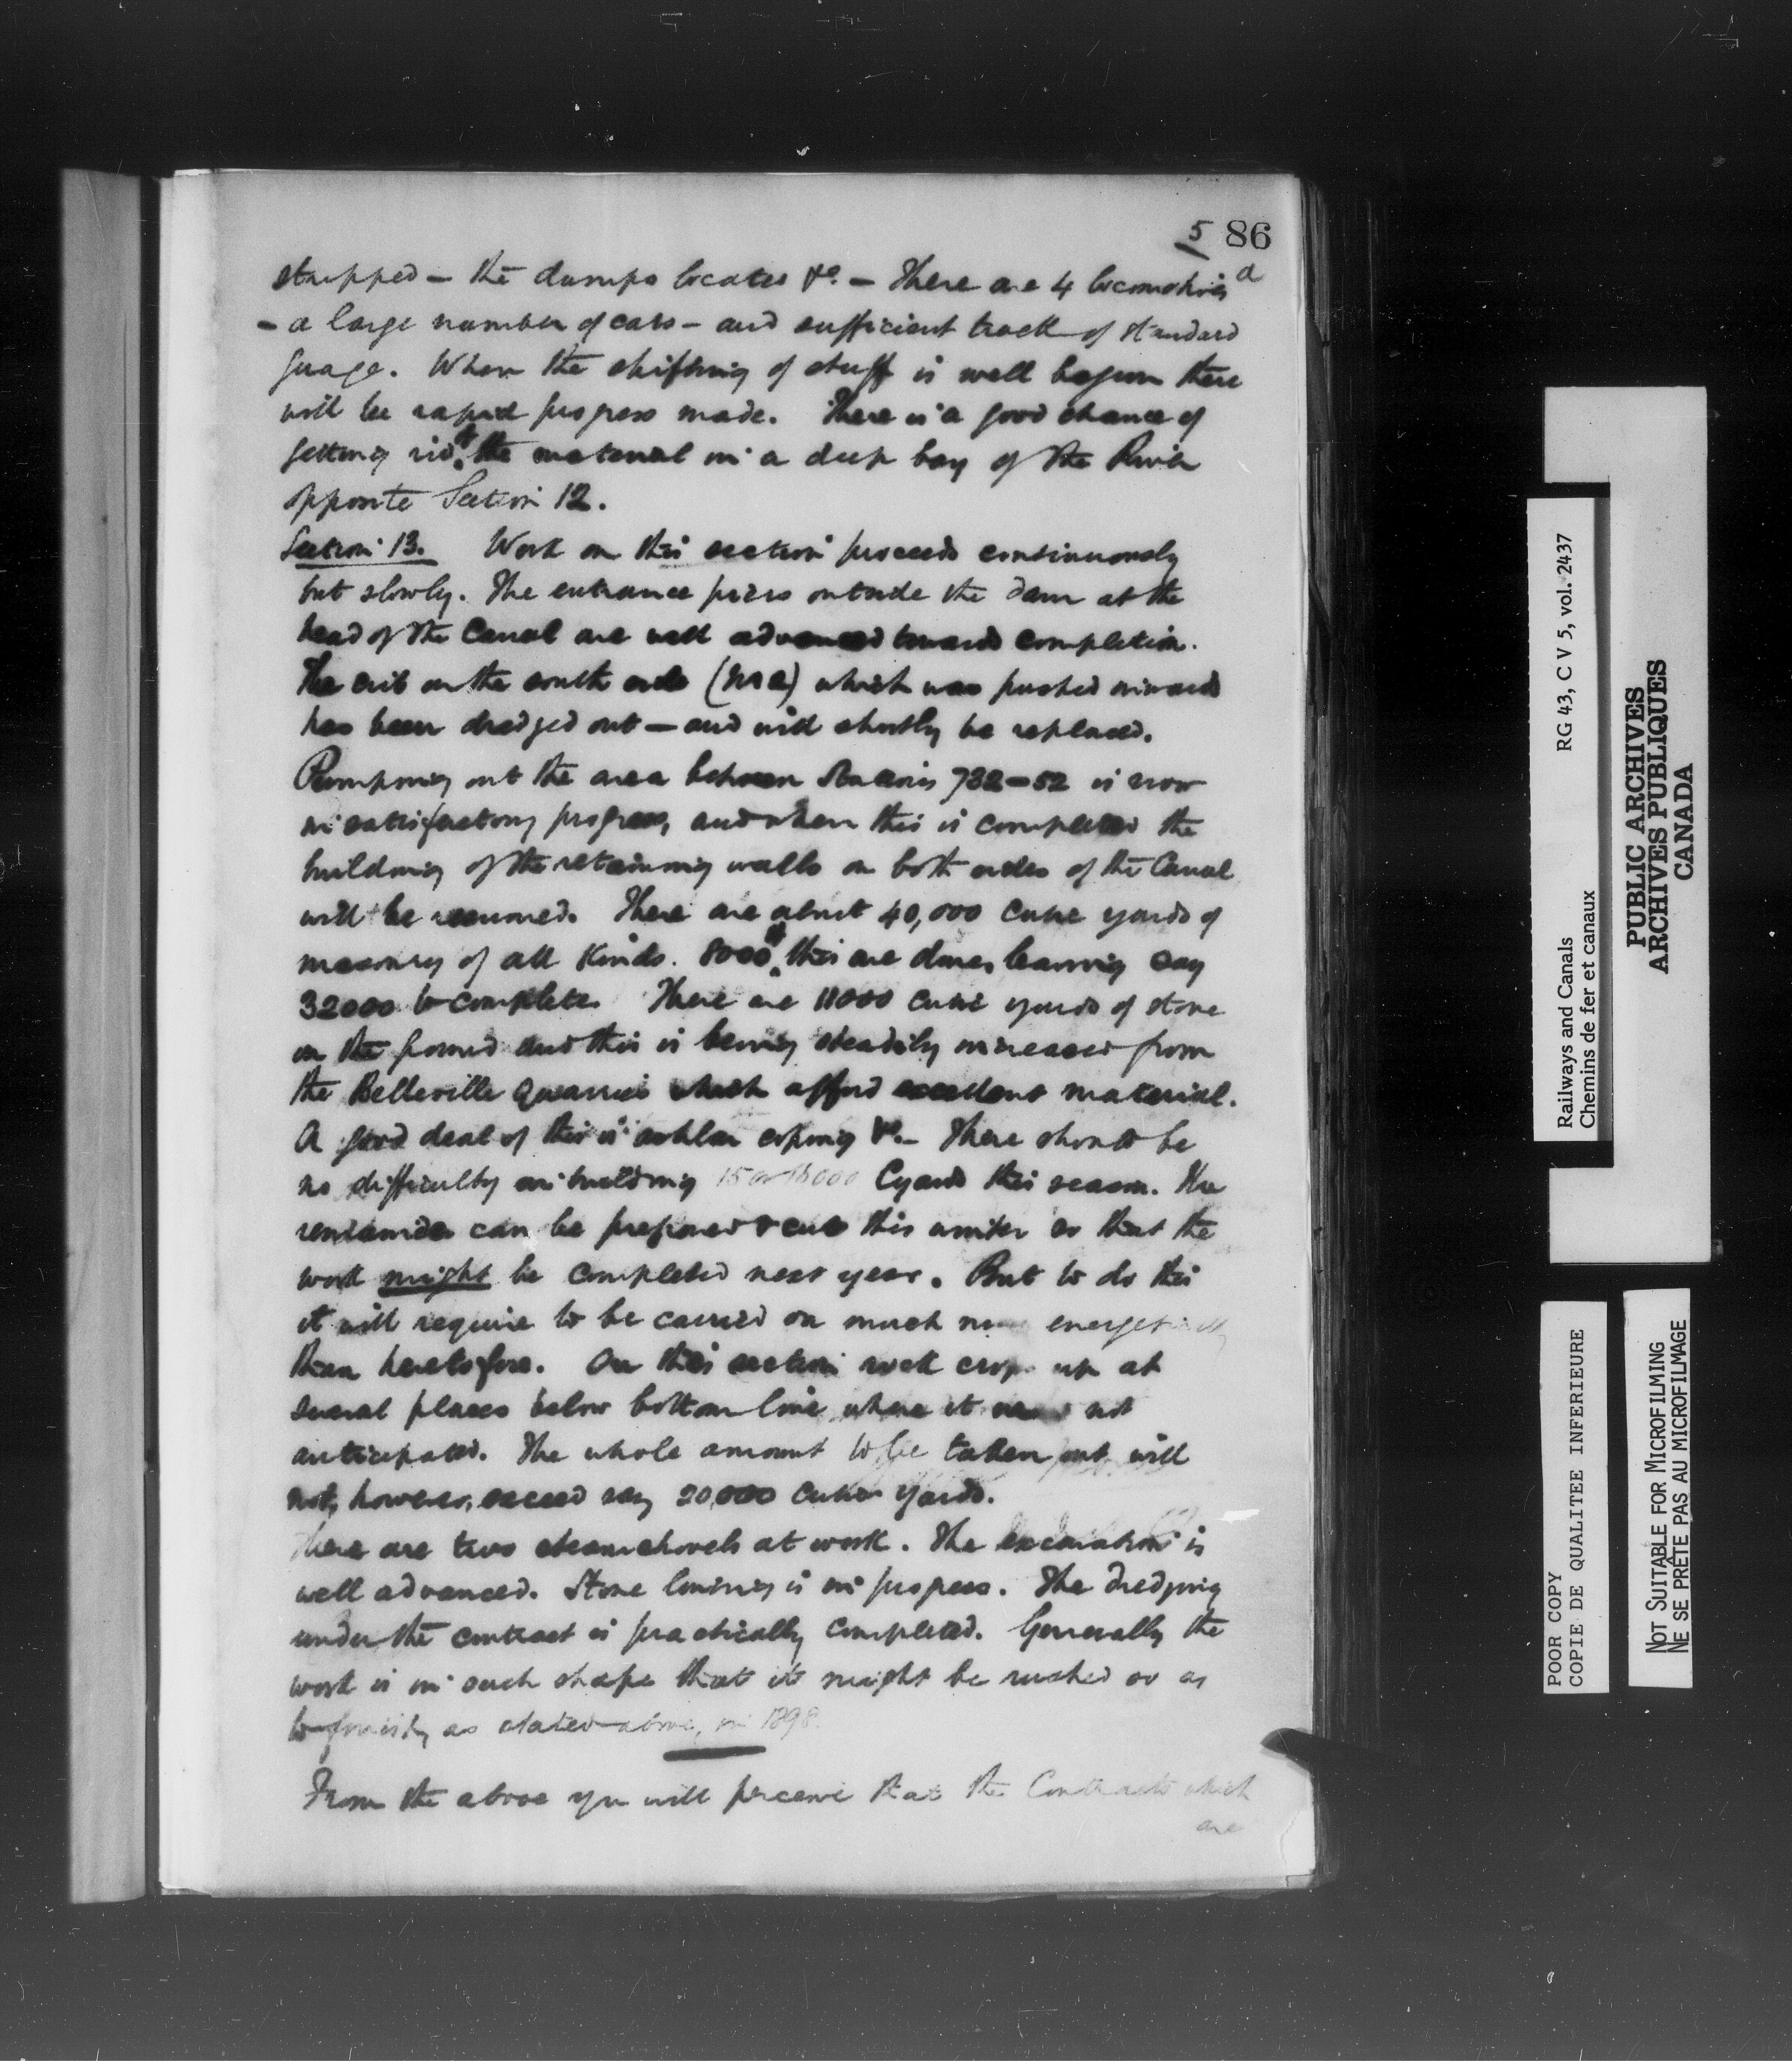 5 86
stripped – the dumps located &c. – There are 4 locomotives
– a large number of cars – and sufficient track of standard
guage. When the shifting of stuff is well begun there
will be rapid progress made. There is a good chance of
getting rid of the material in a deep bay of the River
opposite Section 12.
Section 13. Work on this section proceeds continuously
but slowly. The entrance piers outside the dam at the
head of the Canal are well advanced towards completion.
The crib on the south side which was pushed inwards
has been dredged out – and will shortly be replaced.
Pumping out the area between Stations 732–52 is now
in satisfactory progress, and when this is completed the
building of the retaining walls on both sides of the Canal
will be resumed. There are about 40,000 cubic yards of
masonry of all kinds. 8000 of this are done, leaving say
32000 to complete. There are 11000 cubic yards of stone
on the ground and this is being steadily increased from
the Belleville Quarries which afford excellent material.
A good deal of this is ashlar coping &c. – There should be
no difficulty in building 15 or 16000 Cyards this season. The
remainder can be prepared & cut this winter so that the
work might be completed next year. But to do this
it will require to be carried on much more energetically
than heretofore. On this section rock crops up at
several places below bottom line where it was not
anticipated. The whole amount to be taken out will
not, however, exceed say 20,000 cubic yards.
There are two steamshovels at work. The excavation is
well advanced. Stone lining is in progress. The dredging
under the contract is practically completed. Generally the
work is in such shape that it might be rushed so as
to finish, as stated above, in 1898.
From the above you will perceive that the Contracts which
are
RG 43, C V 5, vol. 2437
Railways and Canals
Chemins de fer et canaux
PUBLIC ARCHIVES
ARCHIVES PUBLIQUES
CANADA
POOR COPY
COPIE DE QUALITEE INFERIEURE
NOT SUITABLE FOR MICROFILMING
NE SE PRÊTE PAS AU MICROFILMAGE